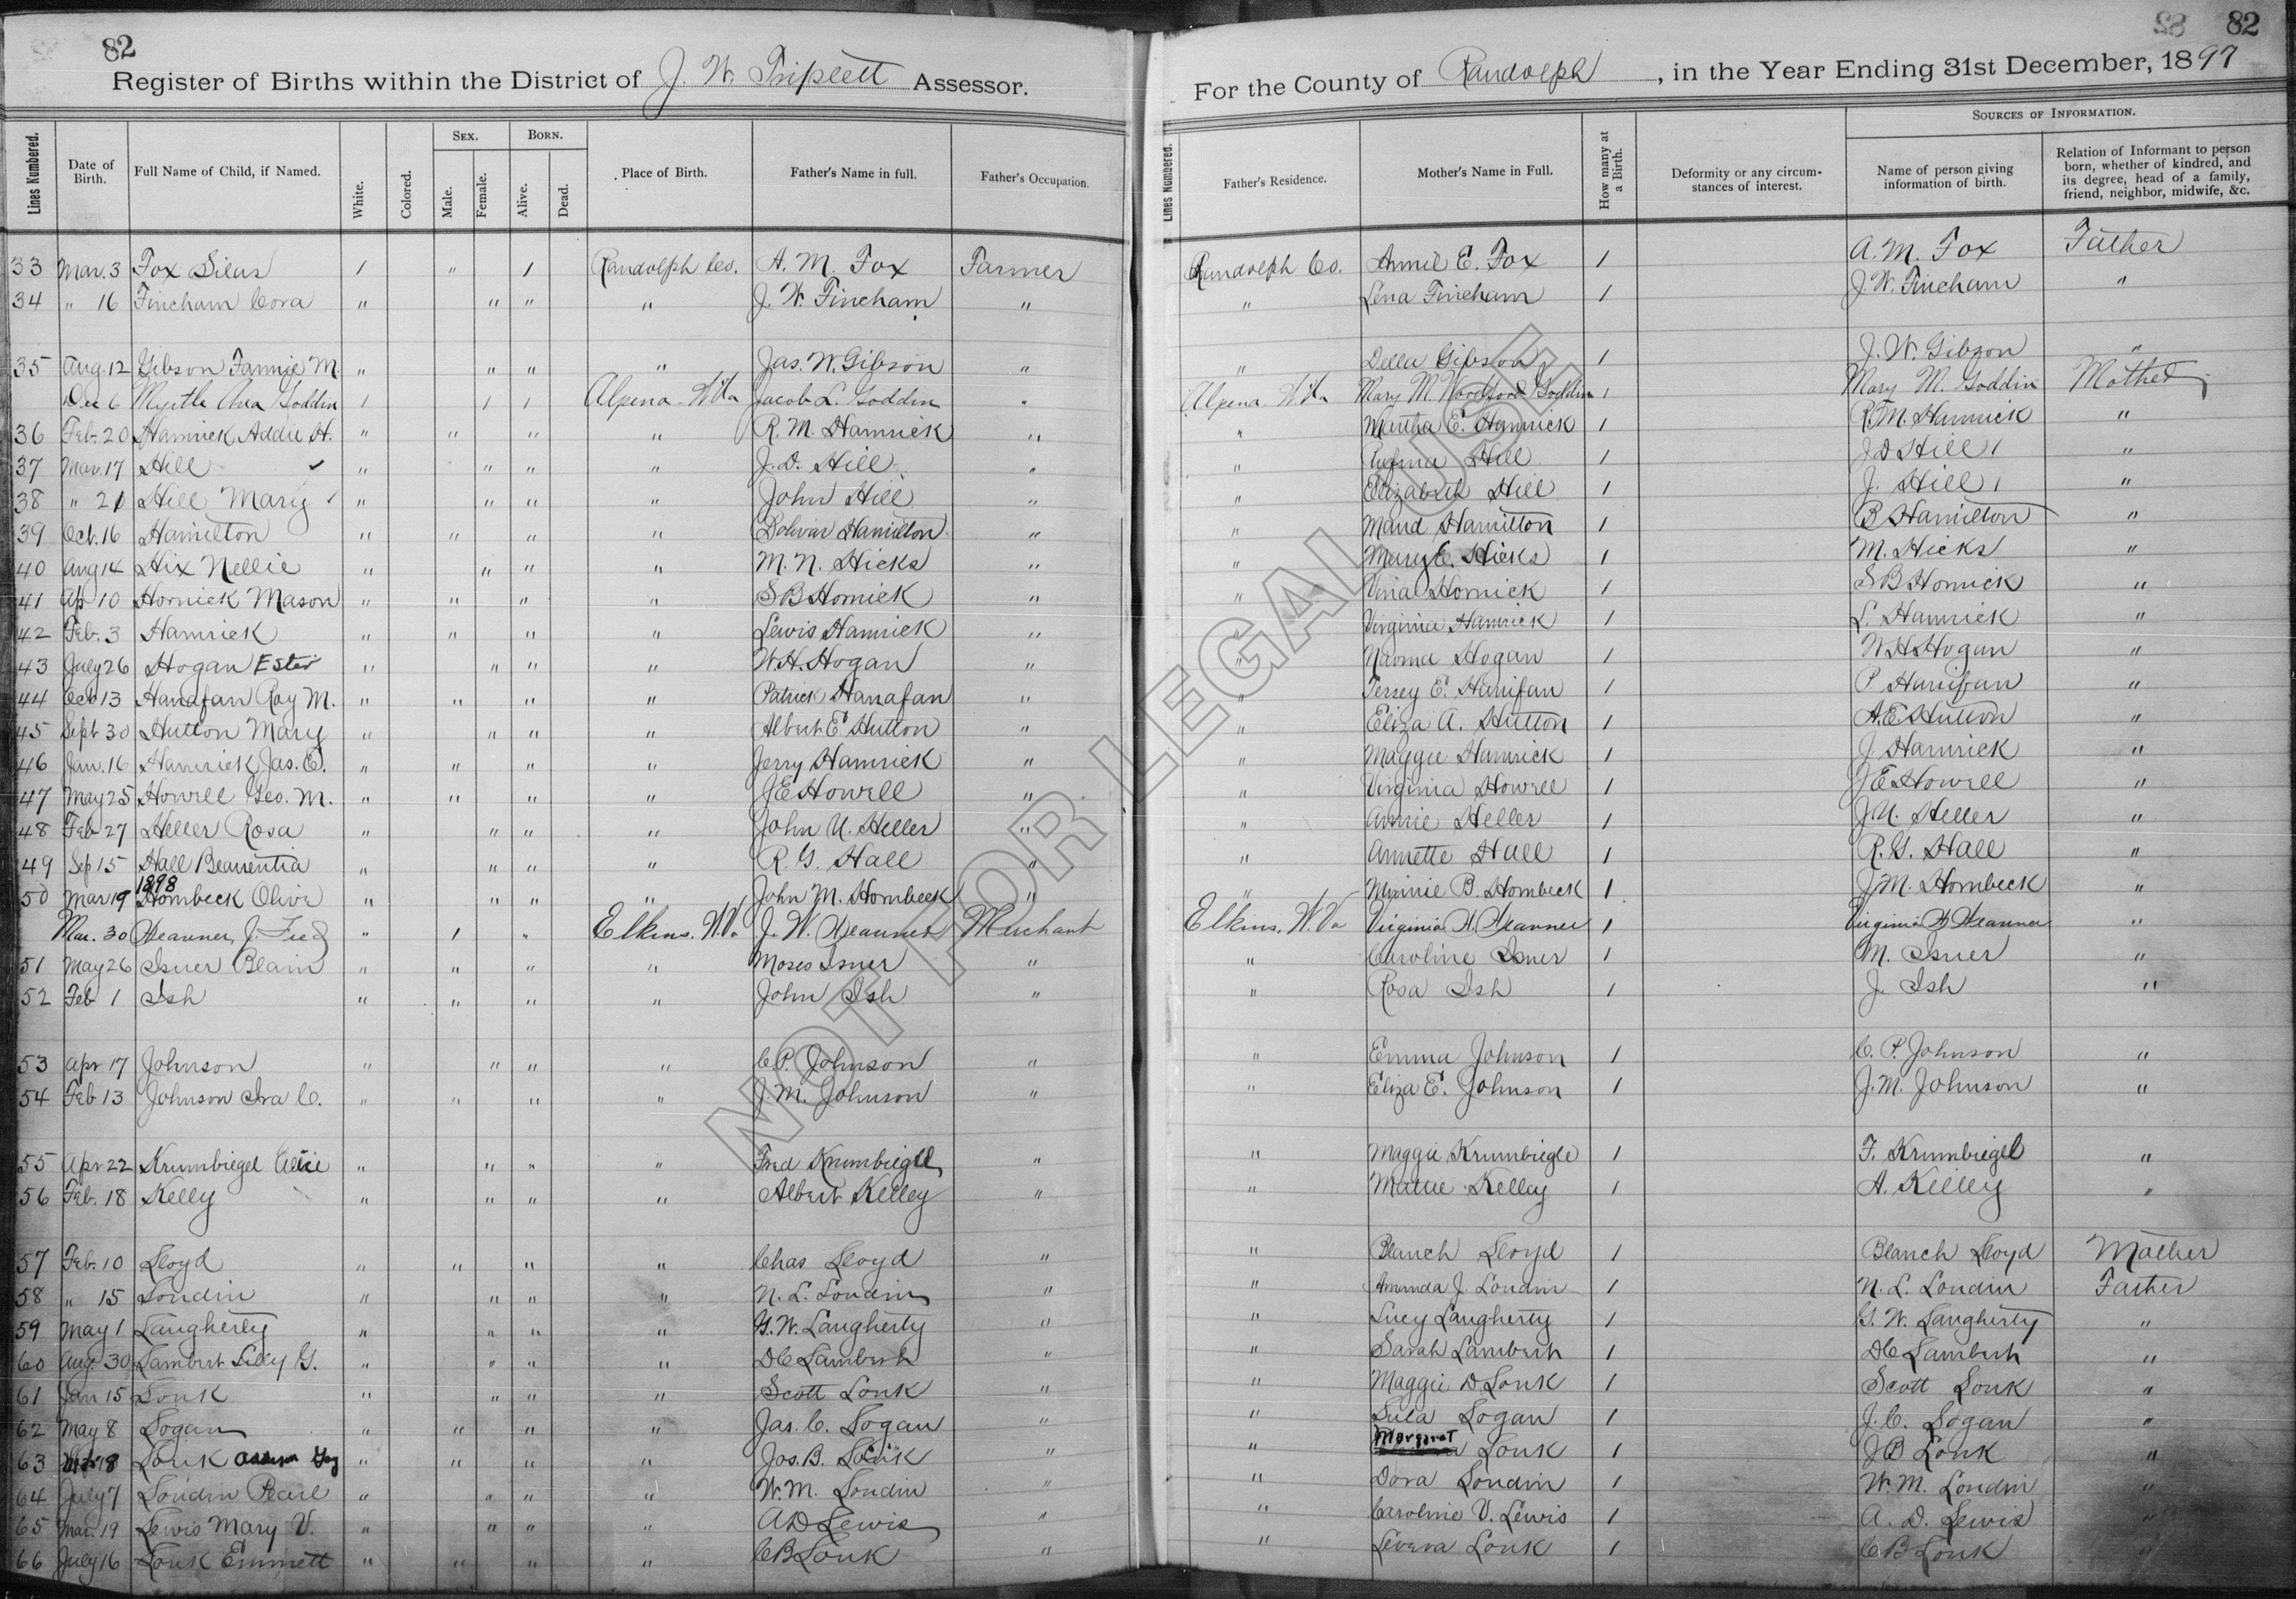 82
Register of Births within the District of J. W. Triplett Assessor.
Lines Numbered. Date of Birth. Full Name of Child, if Named. White. Colored. Sex. Male. Female. Born. Alive. Dead. Place of Birth. Father's Name in full. Father's Occupation.
33 Mar. 3 Fox Silas 1 " 1 Randolph Co. A. M. Fox Farmer
34 " 16 Fincham Cora " " " " J. W. Fincham "
35 Aug. 12 Gibson Fannie M. " " " " Jas. W. Gibson "
Dec 6 Myrtle Ava Goddin 1 1 1 Alpena W.Va Jacob L. Goddin "
36 Feb. 20 Hamrick, Addie H. " " " " R. M. Hamrick "
37 Mar. 17 Hill ✓ " " " " J. D. Hill "
38 " 21 Hill Mary " " " " John Hill "
39 Oct. 16 Hamilton " " " " Bolivar Hamilton "
40 Aug 14 Hix Nellie " " " " M. N. Hicks "
41 Ap 10 Hornick Mason " " " " S B Hornick "
42 Feb. 3 Hamrick " " " " Lewis Hamrick "
43 July 26 Hogan Ester " " " " W. H. Hogan "
44 Oct 13 Hanafan Roy M. " " " " Patrick Hanafan "
45 Sept 30 Hutton Mary " " " " Albert E. Hutton "
46 Jan. 16 Hamrick Jas. E. " " " " Jerry Hamrick "
47 May 25 Howell Geo. M. " " " " J E Howell "
48 Feb 27 Heller Rosa " " " " John U. Heller "
49 Sep 15 Hall " " " " R. G. Hall "
1898
50 Mar 19 Hornbeck Olive " " " " John M. Hornbeck "
Mar. 30 J. Fred " 1 " Elkins, W.Va J. W. Merchant
51 May 26 Isner Blain " " " " Moses Isner "
52 Feb 1 Ish " " " " John Ish "
53 Apr 17 Johnson " " " " C. P. Johnson "
54 Feb 13 Johnson Ira C. " " " " J. M. Johnson "
55 Apr 22 Krumbiegel " " " " Fred Krumbiegel "
56 Feb. 18 Kelly " " " " Albert Kelley "
57 Feb. 10 Lloyd " " " " Chas Lloyd "
58 " 15 Loudin " " " " N. L. Loudin "
59 May 1 Laugherty " " " " G. W. Laugherty "
60 Aug. 30 Lambert Lilly G. " " " " D C Lambert "
61 Jan 15 Louk " " " " Scott Louk "
62 May 8 Logan " " " " Jas. C. Logan "
63 Louk " " " " Jos. B. Louk "
64 July 7 Loudin Pearl " " " " W. M. Loudin "
65 Mar. 19 Lewis Mary V. " " " " A D Lewis "
66 July 16 Louk Emmett " " " " C B Louk "
82 82
For the County of Randolph, in the Year Ending 31st December, 1897
Lines Numbered. Father's Residence. Mother's Name in Full. How many at a Birth. Deformity or any circumstances of interest. Sources of Information. Name of person giving information of birth. Relation of Informant to person born, whether of kindred, and its degree, head of a family, friend, neighbor, midwife, &c.
Randolph Co. Annie E. Fox 1 A. M. Fox Father
" Lena Fincham 1 J. W. Fincham "
" Della Gibson 1 J. W. Gibson "
Alpena W.Va Mary M. Woodford Goddin 1 Mary M. Goddin Mother
" Martha E. Hamrick 1 R. M. Hamrick "
" Hill 1 J D Hill "
" Elizabeth Hill 1 J. Hill "
" Maud Hamilton 1 B Hamilton "
" Mary E. Hicks 1 M. Hicks "
" Vina Hornick 1 S B Hornick "
" Virginia Hamrick 1 L. Hamrick "
" Naoma Hogan 1 W H Hogan "
" Hanifan 1 P Hanifan "
" Eliza A. Hutton 1 A. E Hutton "
" Maggie Hamrick 1 J. Hamrick "
" Virginia Howell 1 J E Howell "
" Annie Heller 1 J. U. Heller "
" Annette Hall 1 R. G. Hall "
" Minnie B. Hornbeck 1 J. M. Hornbeck "
Elkins, W.Va Virginia 1 Virginia "
" Caroline Isner 1 M. Isner "
" Rosa Ish 1 J. Ish "
" Emma Johnson 1 C. P. Johnson "
" Eliza E. Johnson 1 J. M. Johnson "
" Maggie Krumbiegle 1 F. Krumbiegel "
" Mattie Kelley 1 A. Kelley "
" Blanch Lloyd 1 Blanch Lloyd Mother
" Amanda J. Loudin 1 N. L. Loudin Father
" Lucy Laugherty 1 G. W. Laugherty "
" Sarah Lambert 1 D C Lambert "
" Maggie D Louk 1 Scott Louk "
" Lula Logan 1 J. C. Logan "
" Margaret Louk 1 J B Louk "
" Dora Loudin 1 W. M. Loudin "
" Caroline V. Lewis 1 A. D. Lewis "
" Louk 1 C B Louk "
NOT FOR LEGAL USE